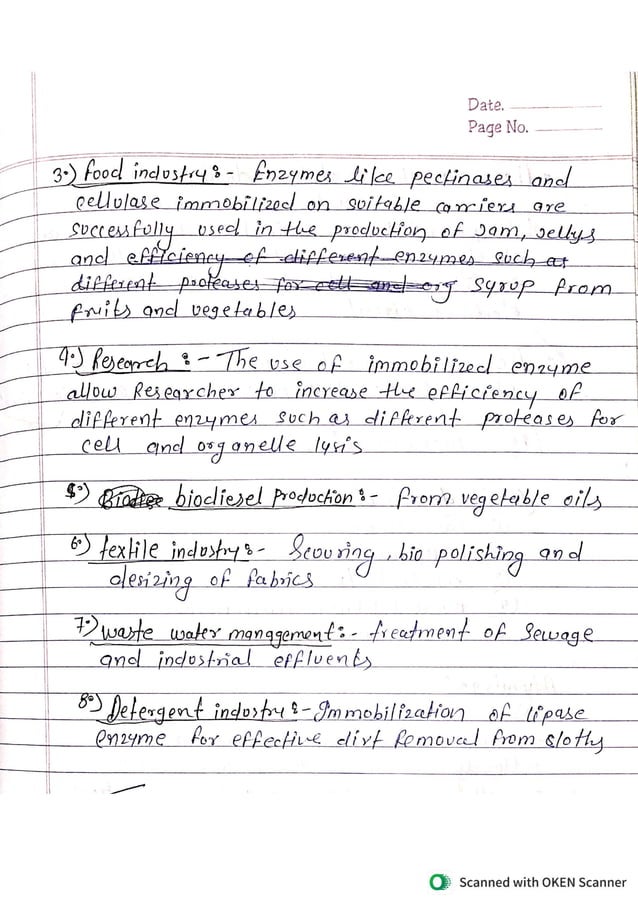 Date.
Page No.
3.) Food industry :- Enzymes like pectinases and
cellulase immobilized on suitable carriers are
successfully used in the production of Jam, Jellys
and efficiency of different enzymes such as
different proteases for cell and org syrup from
fruits and vegetables
4.) Research :- The use of immobilized enzyme
allow Researcher to increase the efficiency of
different enzymes such as different proteases for
cell and organelle lysis
5.) biodiesel production :- from vegetable oils
6.) textile industry :- Scouring, bio polishing and
desizing of fabrics
7.) waste water management :- treatment of sewage
and industrial effluents
8.) Detergent industry :- Immobilization of lipase
enzyme for effective dirt removal from
Scanned with OKEN Scanner